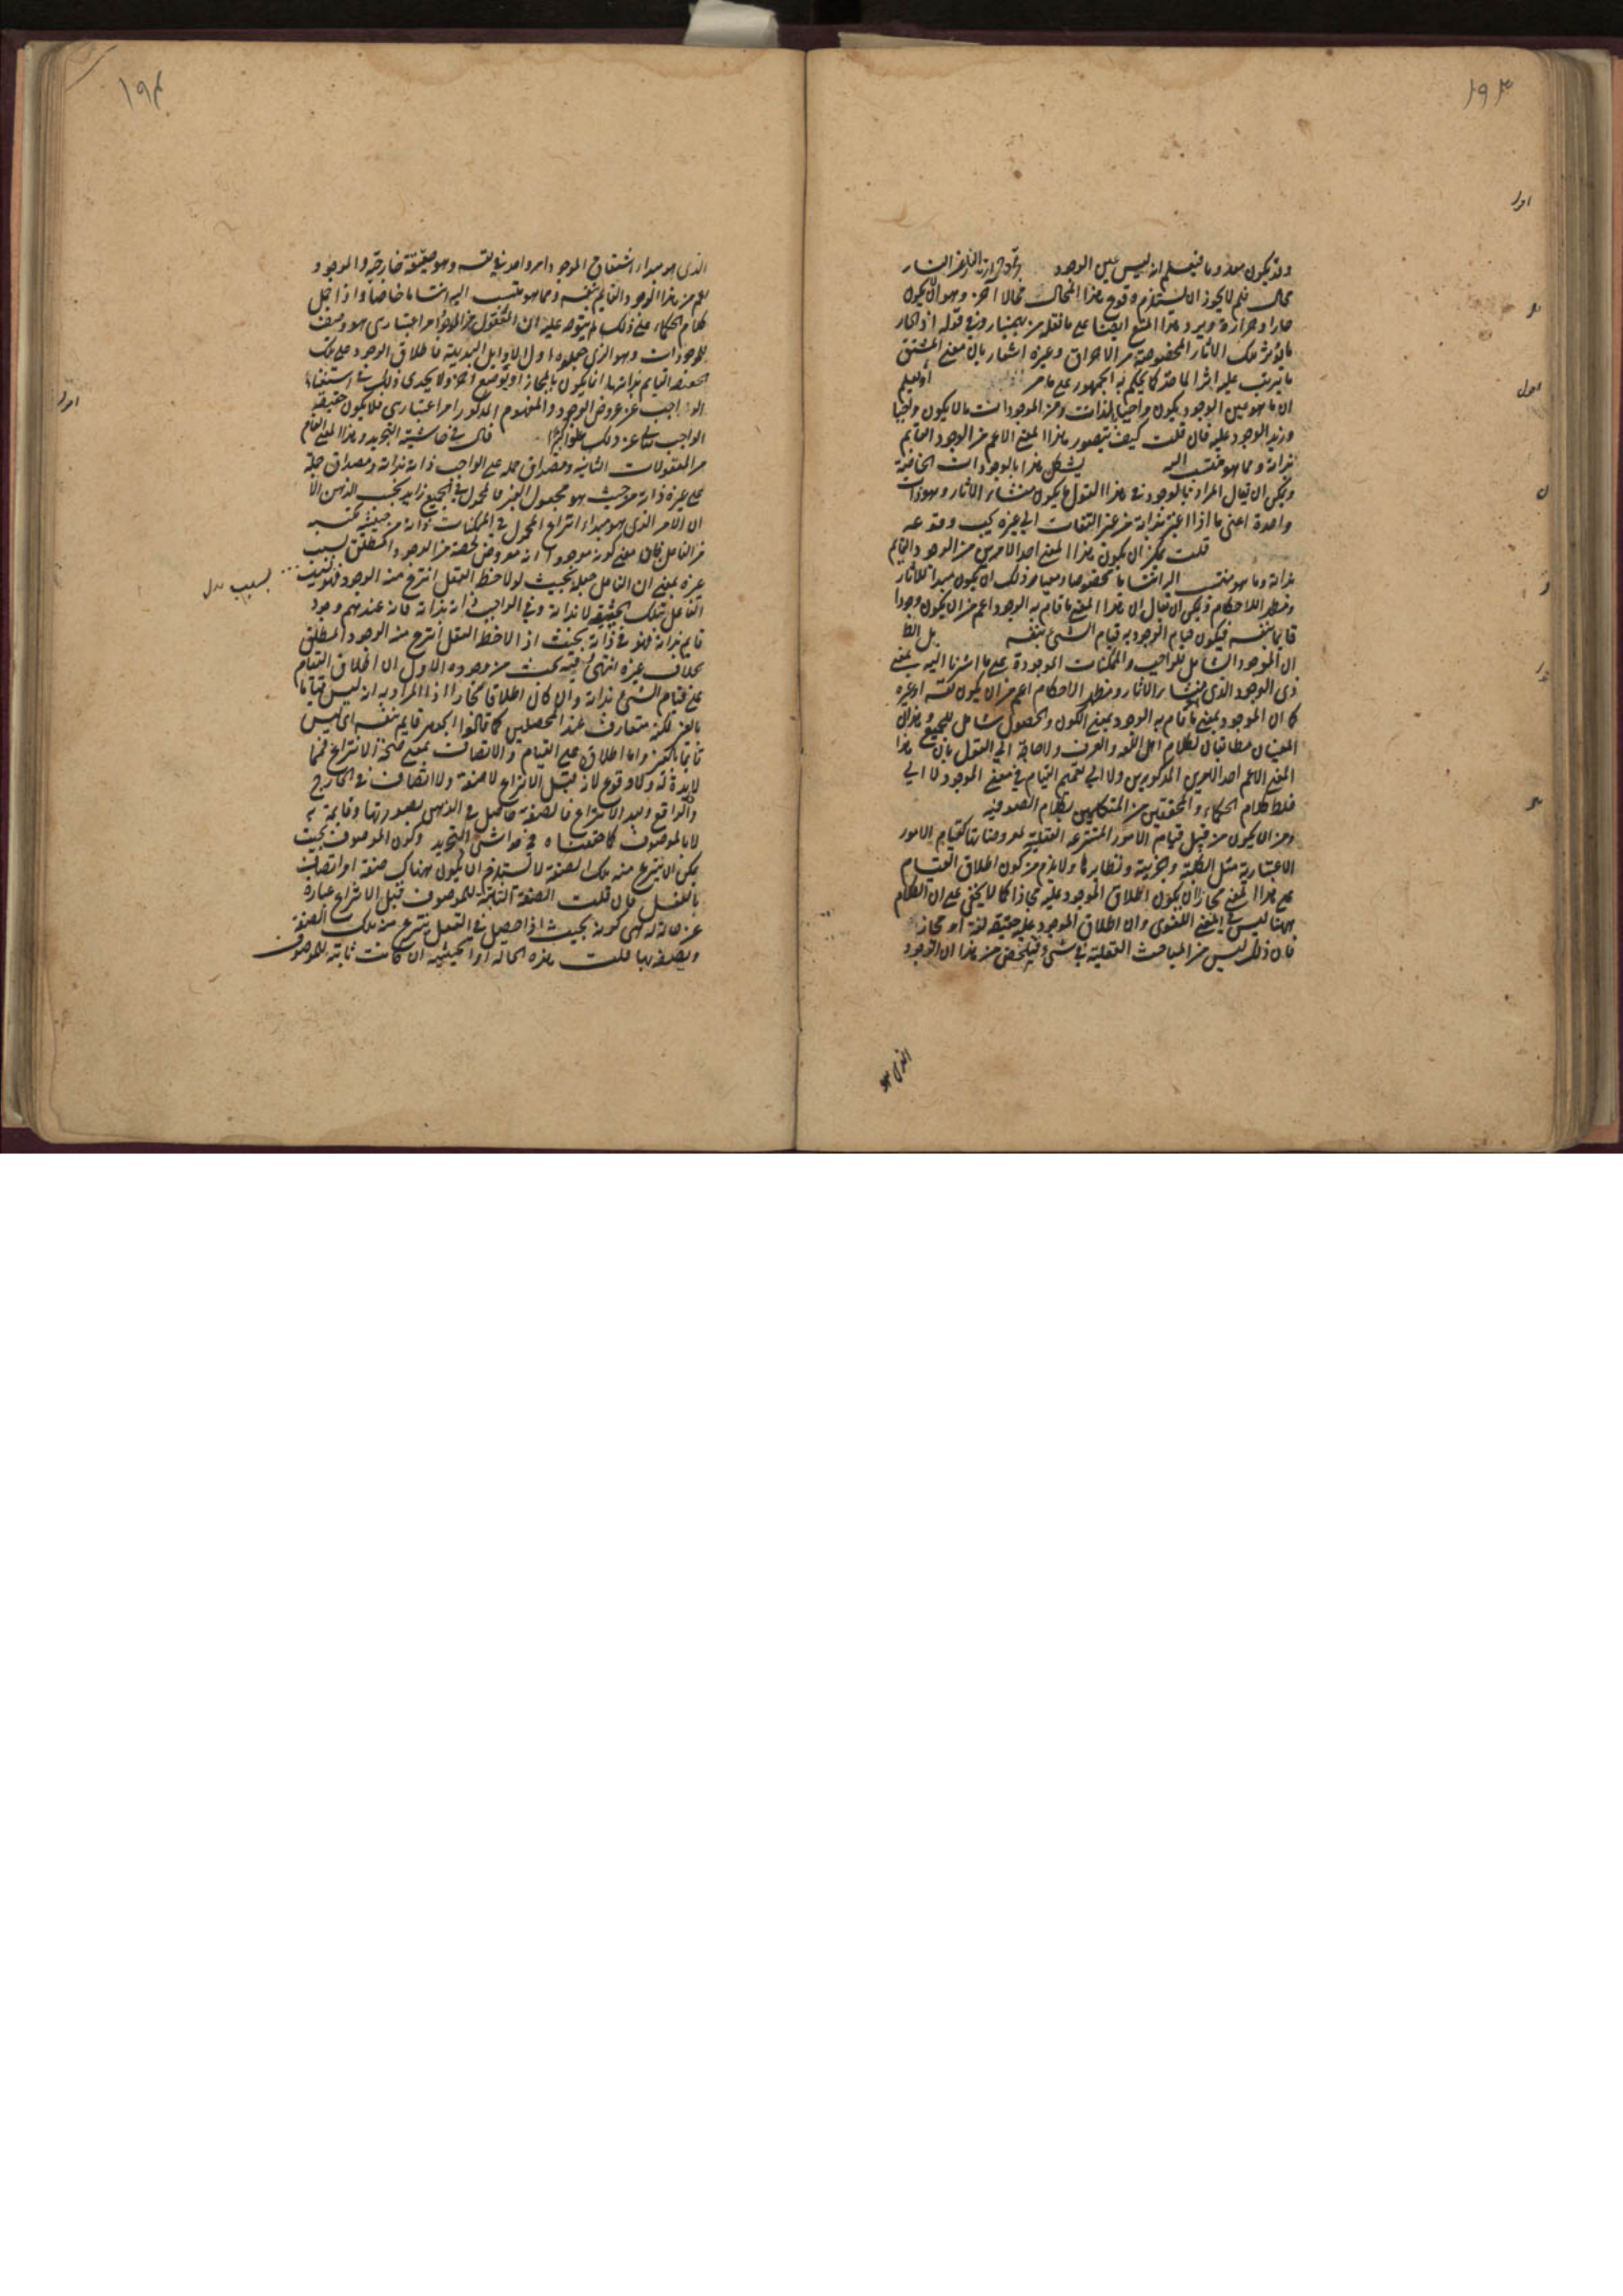 ١٩٣
وقد يكون معدوما فيعلم انه ليس عين الوجود
محال فلم لا يجوز ان يستلزم وقوع هذا المحال محالا آخر وهو ان يكون
حارا وحرارة ويرد هذا المنع ايضا على ما نقله من بهمنيار في قوله اذ الحار
ما يؤثر تلك الاثار المخصوصة من الاحراق وغيره اشعار بان معنى المشتق
ما يترتب عليه اثر الماخذ كما يحكم به الجمهور على ما مر
ان ما هو عين الوجود يكون واجبا بالذات ومن الموجودات ما لا يكون واجبا
وزيد الوجود عليه فان قلت كيف يتصور هذا المعنى الاعم من الوجود القايم
بذاته ومما هو منتسب اليه يشكل هذا بالوجودات الخاصة
ويمكن ان يقال المراد بالوجود في هذا القول ما يكون منشاء الاثار وهو ذات
واحدة اعني ما اذا اعتبر بذاته من غير التفات الى غيره
قلت يمكن ان يكون هذا المعنى احد الامرين من الوجود القايم
بذاته وما هو منتسب اليه انتسابا مخصوصا ومعيار ذلك ان يكون مبدا للاثار
ومظهر الاحكام ويمكن ان يقال ان هذا المعنى ما قام به الوجود اعم من ان يكون وجودا
قايما بنفسه فيكون قيام الوجود به قيام الشيء بنفسه
ان الموجود الشامل للواجب والممكنات الموجودة على ما اشرنا اليه بمعنى
ذي الوجود الذي منشاء الاثار ومظهر الاحكام اعم من ان يكون نفسه او غيره
كما ان الموجود بمعنى ما قام به الوجود بمعنى الكون والحصول شامل للجميع وهذان
المعنيان مطابقان لكلام اهل اللغة والعرف ولا حاجة الى القول بان هذا
المعنى الاعم احد الامرين المذكورين ولا الى تعميم القيام في معنى الموجود ولا الى
خلط كلام الحكماء والمحققين من المتكلمين بكلام الصوفية
ومن ان يكون من قبيل قيام الامور المنتزعة العقلية بمعروضاتها كقيام الامور
الاعتبارية مثل الكلية والجزئية ونظايرها ولا يلزم من كون اطلاق القيام
على هذا المعنى مجازا ان يكون اطلاق الموجود عليه مجازا كما لا يخفى على ان الكلام
ههنا ليس في المعنى اللغوي وان اطلاق الموجود عليه حقيقة لغة او مجاز
فان ذلك ليس من المباحث العقلية في شيء فتلخص من هذا ان الوجود
الذي هو
١٩٤
الذي هو مبداء اشتقاق الموجود امر واحد في نفسه وهو حقيقة خارجية والموجود
اعم من هذا الوجود القايم بنفسه ومما هو منتسب اليه انتسابا خاصا واذا حمل
كلام الحكماء على ذلك لم يتوجه عليه ان المعقول من الوجود امر اعتباري هو وصف
للموجودات وهو الذي جعلوه اول الاوايل البديهية فاطلاق الوجود على تلك
الحقيقة القايمة بذاتها انما يكون بالمجاز او بوضع آخر ولا يجدي ذلك في استغناء
الواجب عن عروض الوجود والمفهوم المذكور امر اعتباري فلا يكون حقيقة
الواجب تعالى عن ذلك علوا كبيرا قال في حاشية التجريد وهذا المعنى العام
من المعقولات الثانية ومصداق حمله على الواجب ذاته بذاته ومصداق حمله
على غيره ذاته من حيث هو مجعول الغير فالمحمول في الجميع زايد بحسب الذهن الا
ان الامر الذي هو مبداء انتزاع المحمول في الممكنات ذاته من حيثية مكتسبة
من الفاعل فان معنى كونه موجودا انه معروض لحصة من الوجود المطلق بسبب
غيره بمعنى ان الفاعل جعله بحيث لو لاحظه العقل انتزع منه الوجود فهو بسبب
الفاعل بتلك الحيثية لا بذاته وفي الواجب ذاته بذاته فانه عندهم وجود
قايم بذاته فهو في ذاته بحيث اذا لاحظه العقل انتزع منه الوجود المطلق
بخلاف غيره انتهى وفيه بحث من وجوه الاول ان اطلاق القيام
على قيام الشيء بذاته وان كان اطلاقا مجازا اذ المراد به انه ليس قياما
بالغير لكنه متعارف عند المحصلين كما قالوا الجوهر قايم بنفسه اي ليس
قايما بالغير واما اطلاق على القيام والاتصاف بمعنى صحة الانتزاع فمما
لا يدة له ولا وقوع لانه قبل الانتزاع لا صفة ولا اتصاف في الخارج
والواقع وبعد الانتزاع فالصفة حاصل في الذهن بصورتها وقايمة به
لا بالموصوف كما حققناه في حواشي التجريد وكون الموصوف بحيث
يمكن ان ينتزع منه تلك الصفة لا يستلزم ان يكون هناك صفة او اتصاف
بالفعل فان قلت الصفة الثابتة للموصوف قبل الانتزاع عبارة
عن حالة له هي كونه بحيث اذا حصل في العقل ينتزع منه تلك الصفة
ويصفه بها قلت هذه الحالة او الحيثية ان كانت ثابتة للموصوف
بسبب بدل